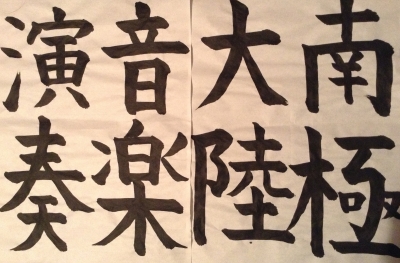 南極
大陸
音楽
演奏